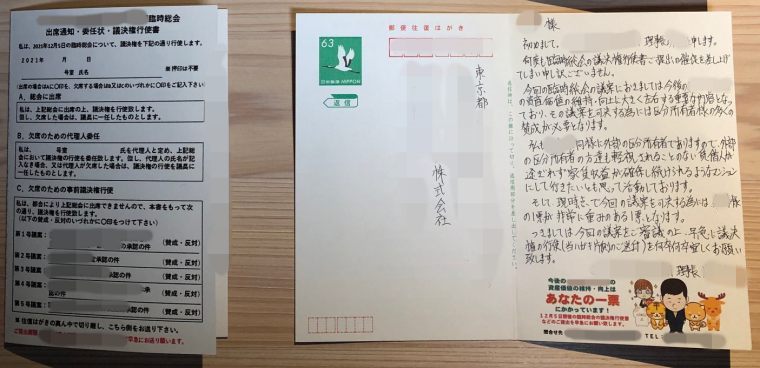 臨時総会
出席通知・委任状・議決権行使書
私は、2021年12月5日の臨時総会について、議決権を下記の通り行使します。
2021年 月 日
号室 氏名
※押印は不要
(出席の場合はAに〇印を、欠席する場合はB又はCのいづれかに〇印をご記入下さい)
A、総会に出席
私は、上記総会に出席の上、議決権を行使致します。
但し、欠席した場合は、議長に一任したものとします。
B、欠席のための代理人委任
私は、 号室 氏を代理人と定め、上記総
会において議決権の行使を委任致します。但し、代理人の氏名が記
入なき場合、又は代理人が欠席した場合は、議決権の行使を議長に
一任したものとします。
C、欠席のための事前議決権行使
私は、都合により上記総会に出席できませんので、本書をもって次
の通り、議決権を行使致します。
(以下の賛成・反対のいずれかに〇印をつけて下さい)
第1号議案: の承認の件 (賛成・反対)
第2号議案: 承認の件 (賛成・反対)
第3号議案: の件 (賛成・反対)
第4号議案: 承
認の件 (賛成・反対)
第5号議案: の件 (賛成・反対)
※ 往信はがきの真ん中で切り離し、こちら側をお送り下さい。
早急にお願い致します。
郵便往復はがき
63
日本郵便 NIPPON
返信
東京都
株式会社
様
初めまして、 理事長 申します。
何度も臨時総会の議決権行使書ご提出の催促を差し上げ
てしまい申し訳ございません。
今回の臨時総会の議案におきましては今後の
の資産価値の維持・向上に大きく左右する重要な内容となっ
ており、その議案を可決する為には区分所有者様の多くの
賛成が必要となります。
私も 同様に外部の区分所有者でありますので、外部
の区分所有者の方達も軽視されることのない
家賃収益が確保し続けられるようなマンション
にして行きたいとも思って活動しております。
そして現時点で今回の議案を可決する為には 様
の1票が非常に重みのある1票となります。
つきましては今回の議案をご審議の上、早急に議決
権の行使(当ハガキ片側のご送付)を何卒何卒宜しくお願い
致します。
理事長
今後の の
資産価値の維持・向上は
あなたの一票
にかかっています!
12月5日開催の臨時総会の議決権行使書
などのご提出を早急にお願い致します。
問合せ先
TEL: